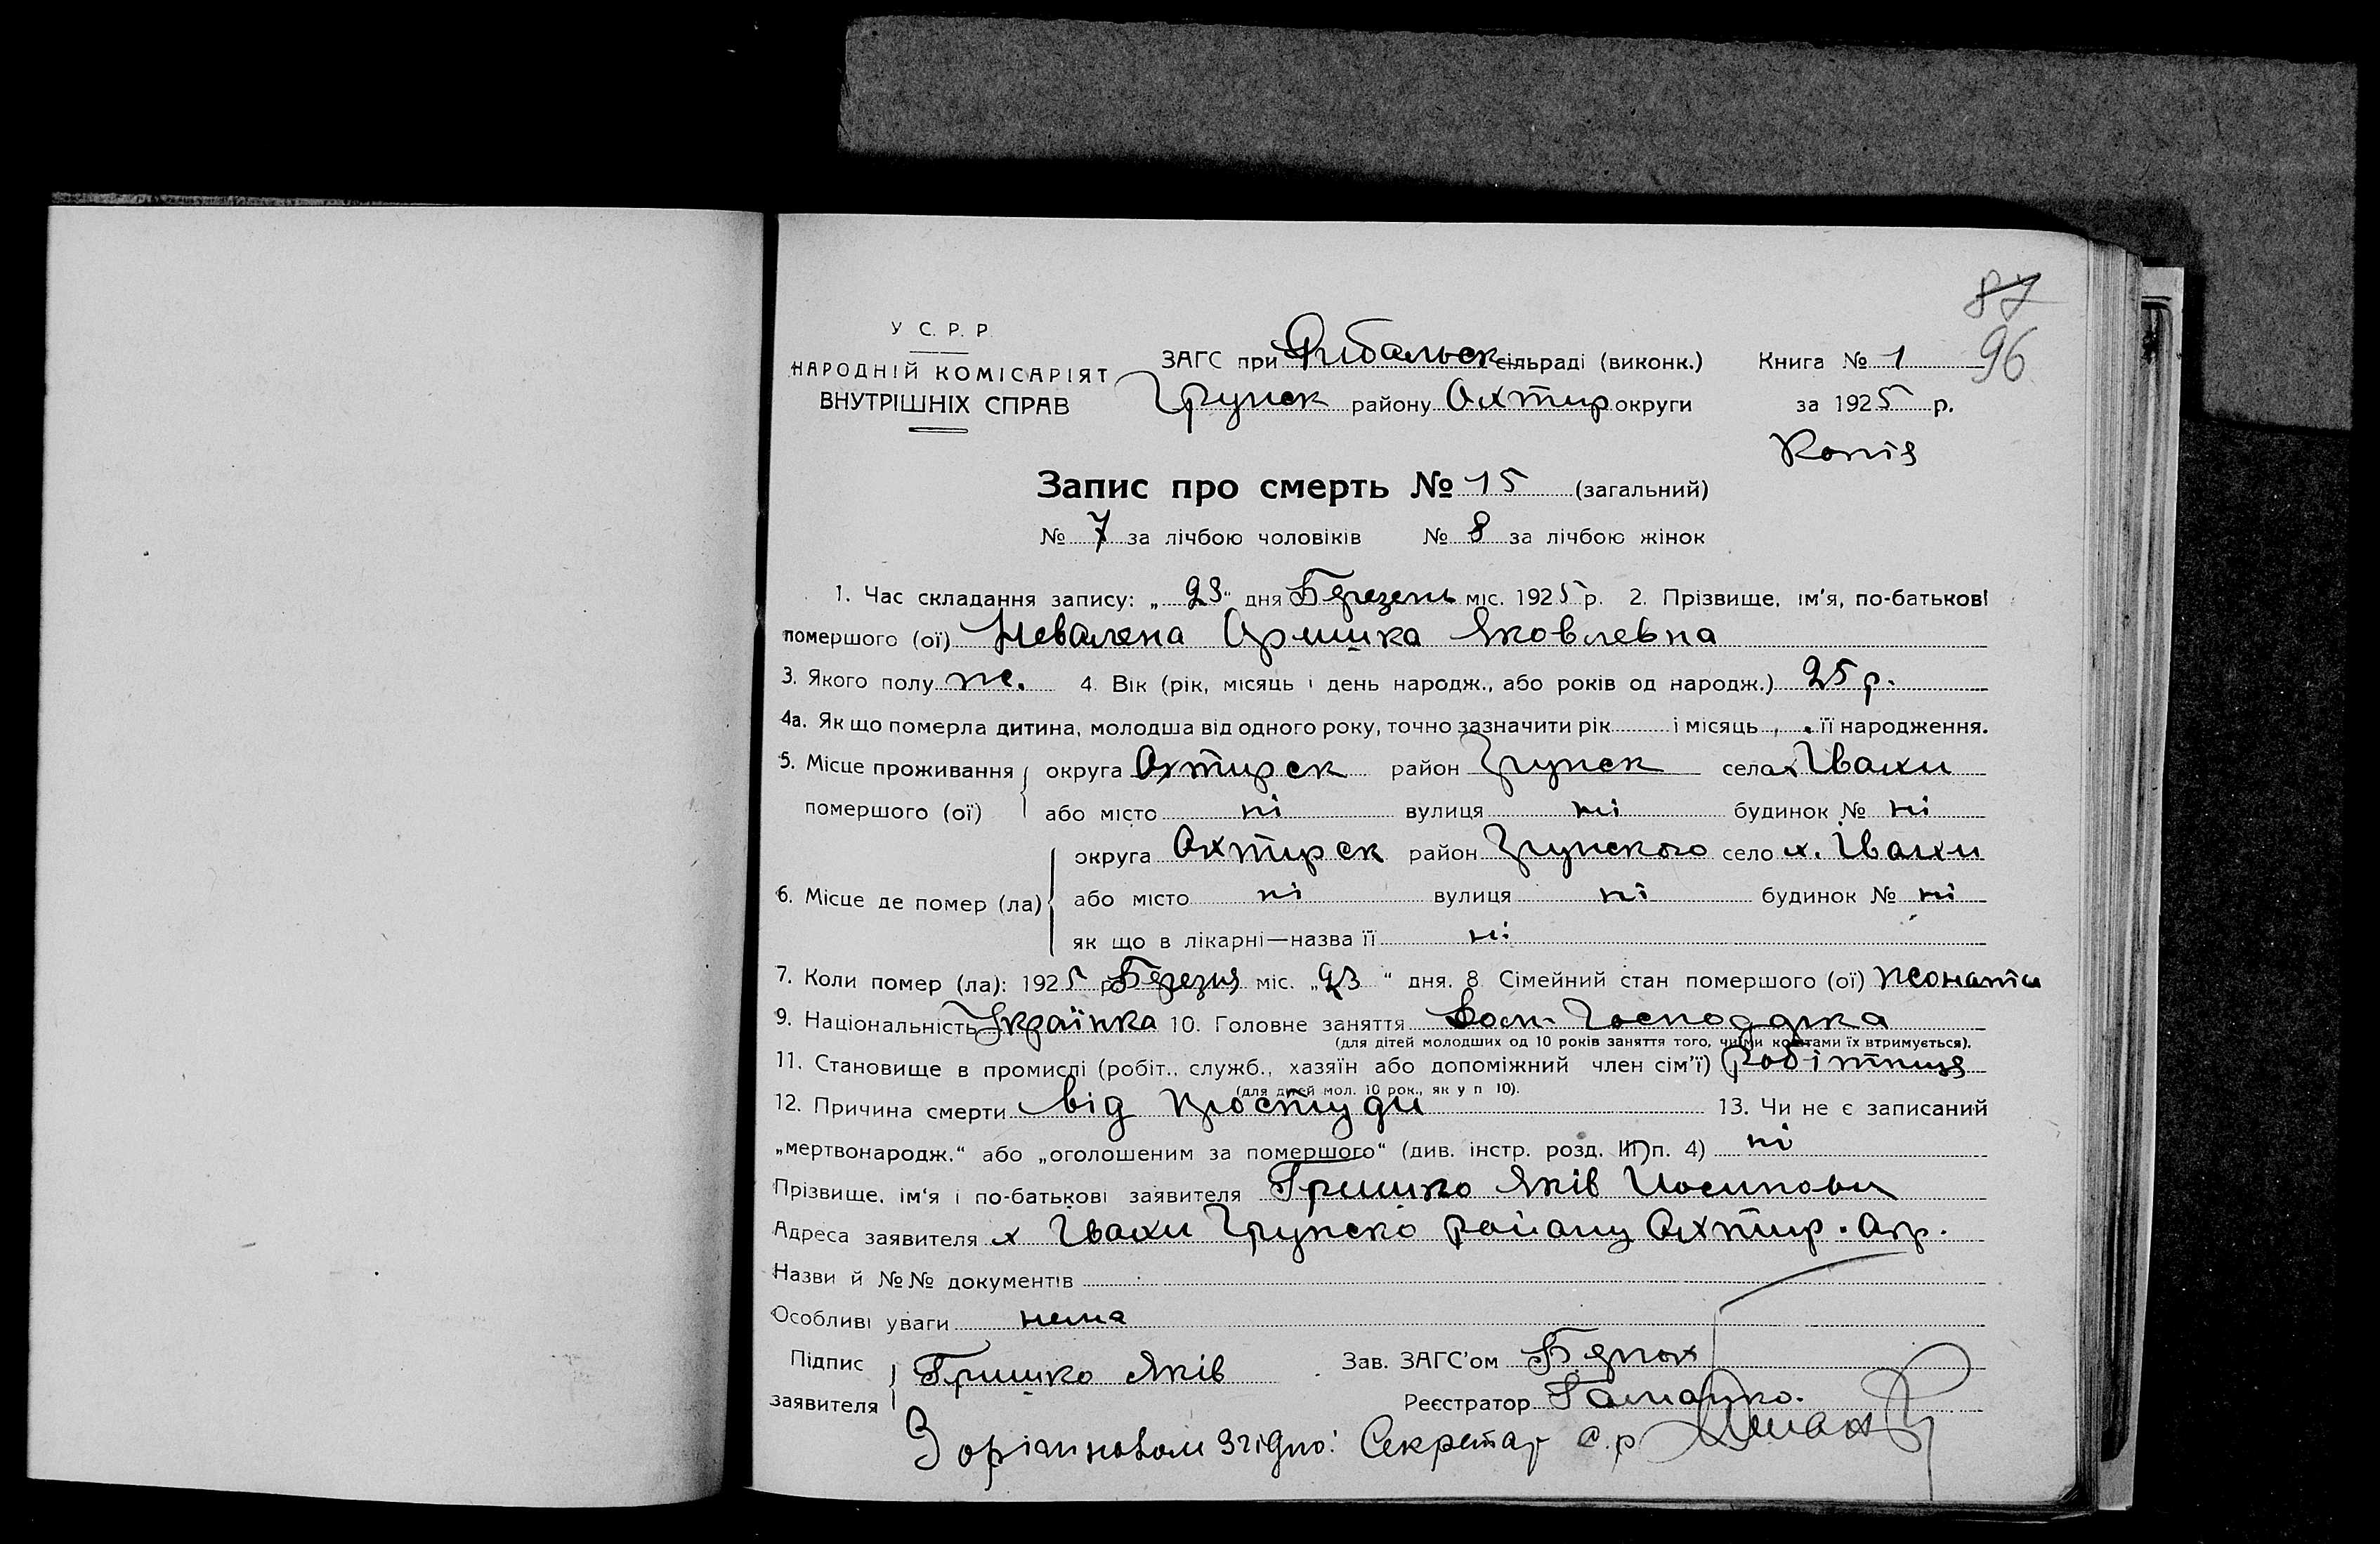 87
96
У С. Р. Р.
НАРОДНІЙ КОМІСАРІЯТ
ВНУТРІШНІХ СПРАВ
ЗАГС при Рибальск сільраді (виконк.) Книга № 1
Грунск району Охтир округи за 1925 р.
Копія
Запис про смерть № 15 (загальний)
№ 7 за лічбою чоловіків № 8 за лічбою жінок
1. Час складання запису: „ 23 “ дня Березень міс. 1925 р. 2. Прізвище, ім'я, по-батькові
помершого (ої) Яковлевна
3. Якого полу ж. 4. Вік (рік, місяць і день народж., або років од народж.) 25 р.
4а. Як що померла дитина, молодша від одного року, точно зазначити рік і місяць її народження.
5. Місце проживання округа Охтирск район Грунск село х Івахи
помершого (ої) або місто ні вулиця ні будинок № ні
округа Охтирск район Грунского село х. Івахи
6. Місце де помер (ла) або місто ні вулиця ні будинок № ні
як що в лікарні—назва її ні
7. Коли помер (ла): 1925 р Березня міс. „23 “ дня. 8. Сімейний стан помершого (ої) жоната
9. Національність Українка 10. Головне заняття
(для дітей молодших од 10 років заняття того, чиїми коштами їх втримується).
11. Становище в промислі (робіт., служб., хазяїн або допоміжний член сім'ї) робітниця
(для дітей мол. 10 рок., як у п 10).
12. Причина смерти від простуди 13. Чи не є записаний
„мертвонародж.“ або „оголошеним за помершого“ (див. інстр. розд. III п. 4) ні
Прізвище, ім'я і по-батькові заявителя Гришко Яків Иосипови
Адреса заявителя х Івахи Грунско району Охтир. окр.
Назви й №№ документів
Особливі уваги нема
Підпис заявителя Гришко Яків Зав. ЗАГС'ом
Реєстратор
З орігиналом згідно: Секретар с.р